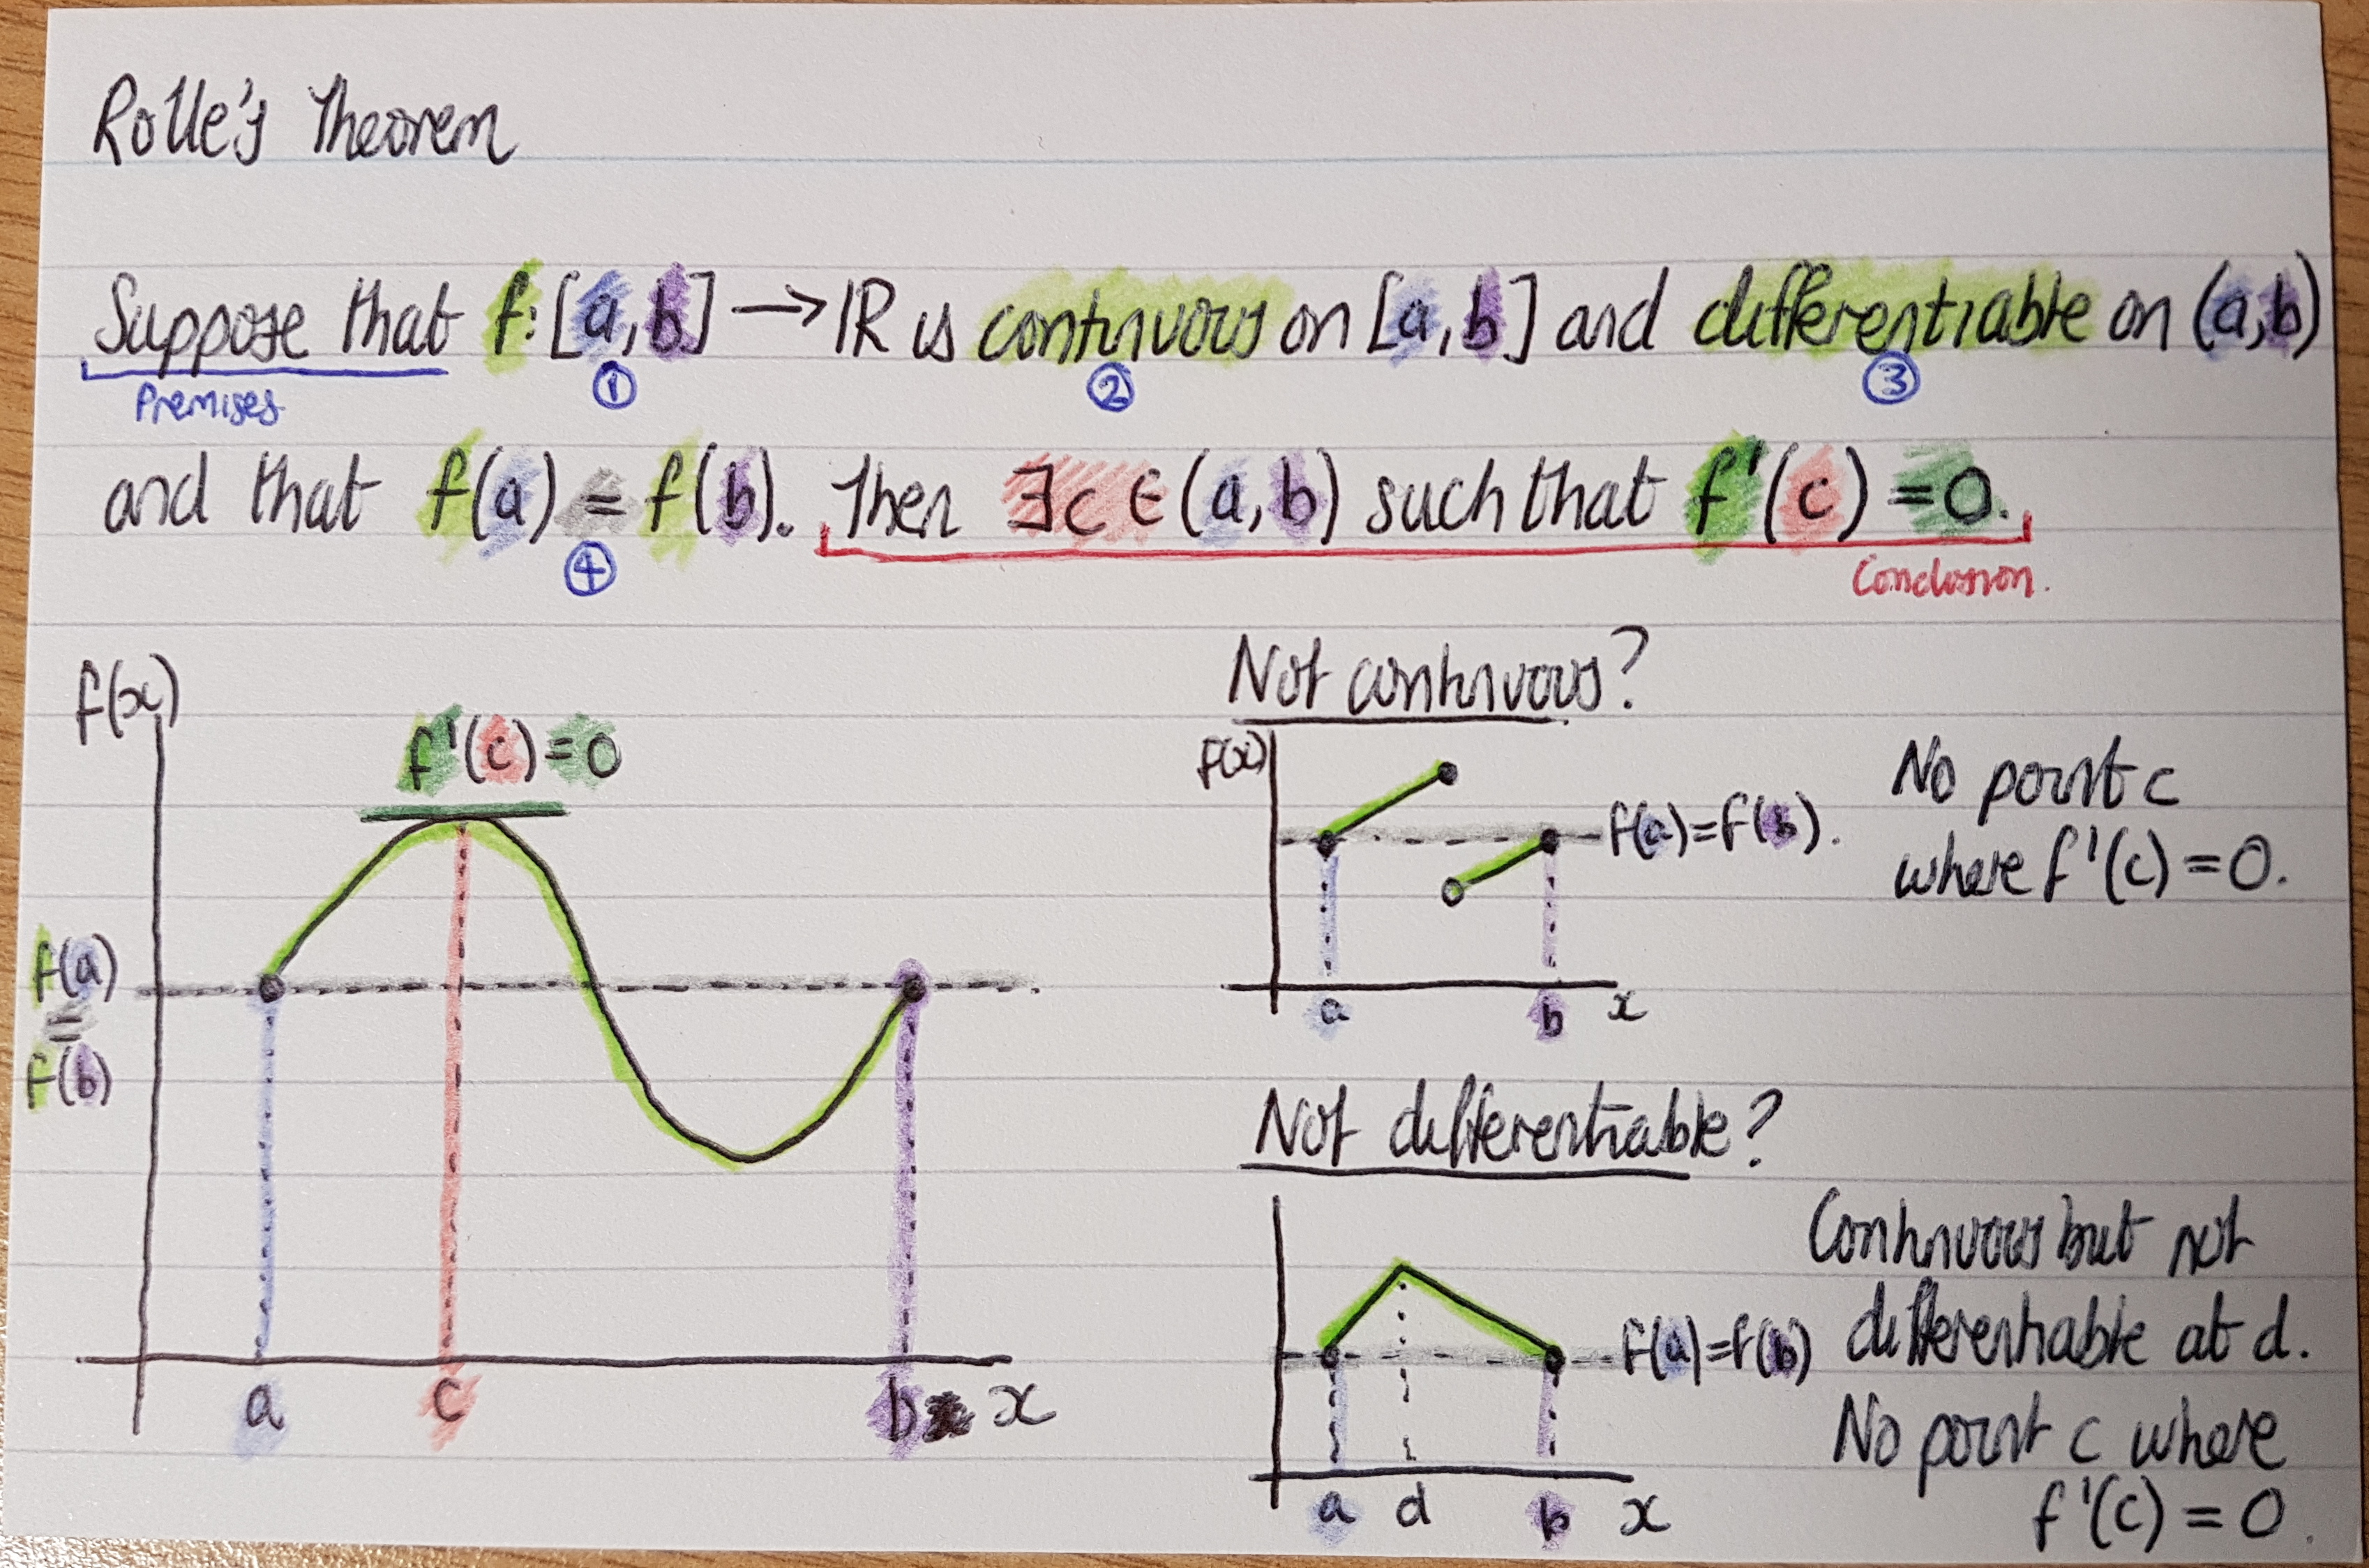 Rolle's Theorem
Suppose that f: [a,b] → ℝ is continuous on [a,b] and differentiable on (a,b)
Premises ① ② ③
and that f(a) = f(b). Then ∃c ∈ (a,b) such that f'(c) = 0.
④ Conclusion.
f(x)
f'(c) = 0
f(a)
=
f(b)
a c b x
Not continuous?
f(x)
f(a)=f(b).
a b x
No point c
where f'(c) = 0.
Not differentiable?
f(a)=f(b)
a d b x
Continuous but not
differentiable at d.
No point c where
f'(c) = 0.